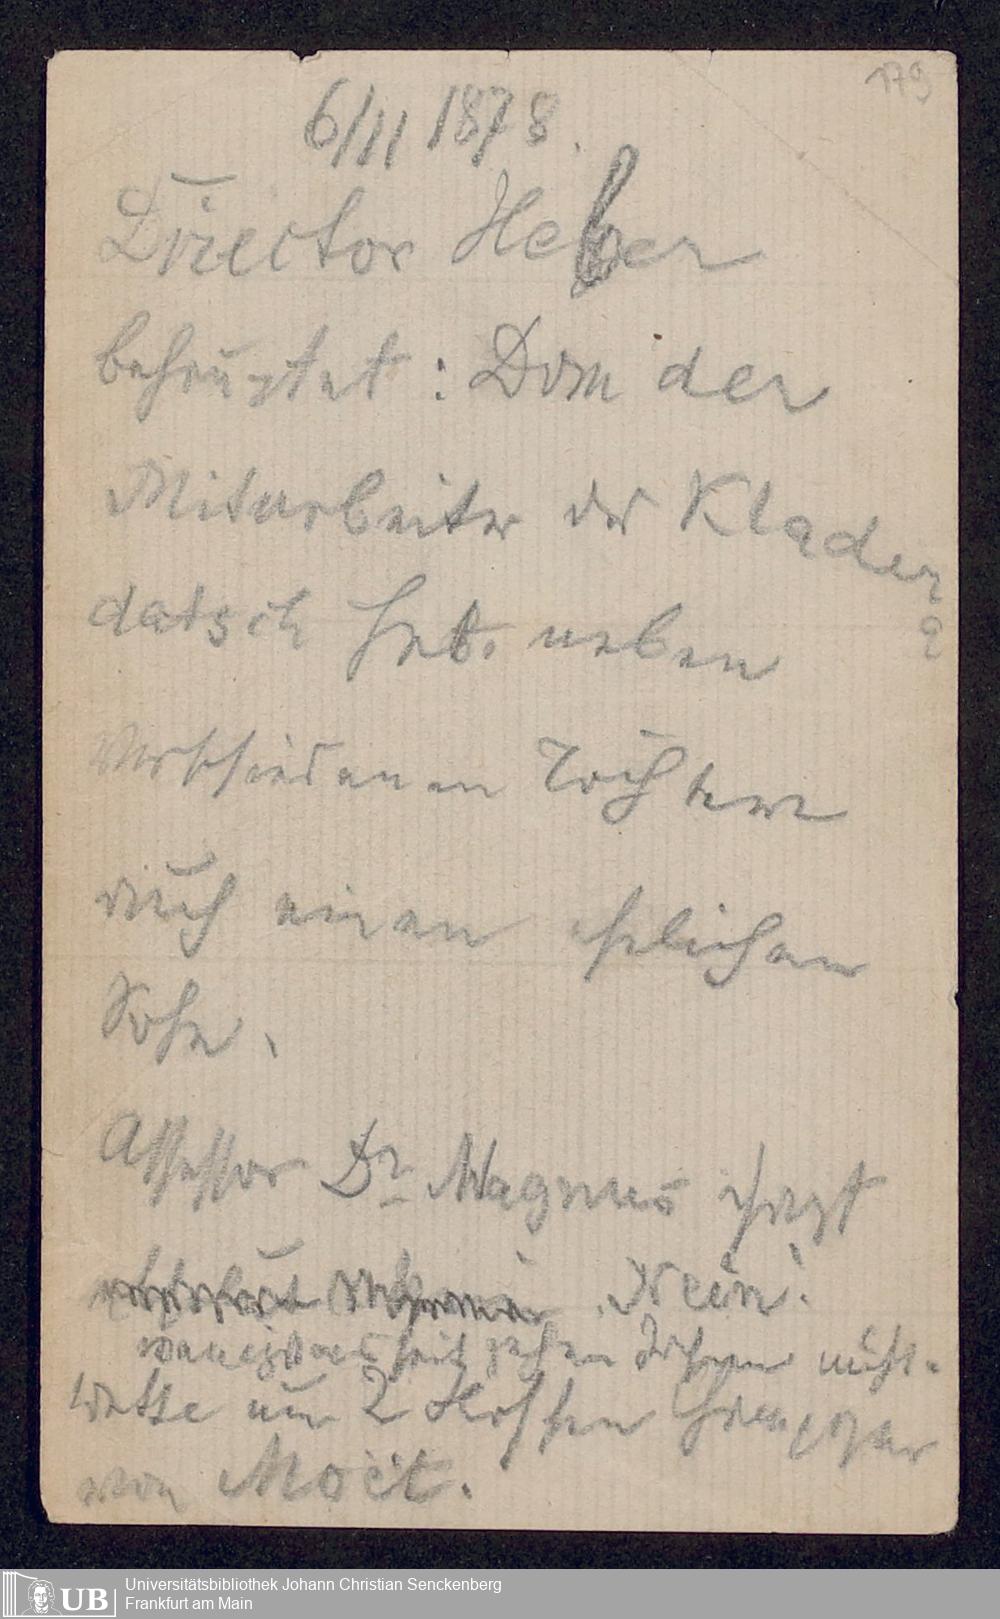 179
6/11 1878.
Director Heber
behauptet: Dom der
Mitarbeiter des Kladder
datsch hat neben
verschiedenen Töchtern
auch einen ehelichen
Sohn.
Assessor Dr Magnus sagt
Nein!
seit zehn Jahren nicht.
Wette um 2 Flaschen Champagner
von Moët.
UB Universitätsbibliothek Johann Christian Senckenberg
Frankfurt am Main